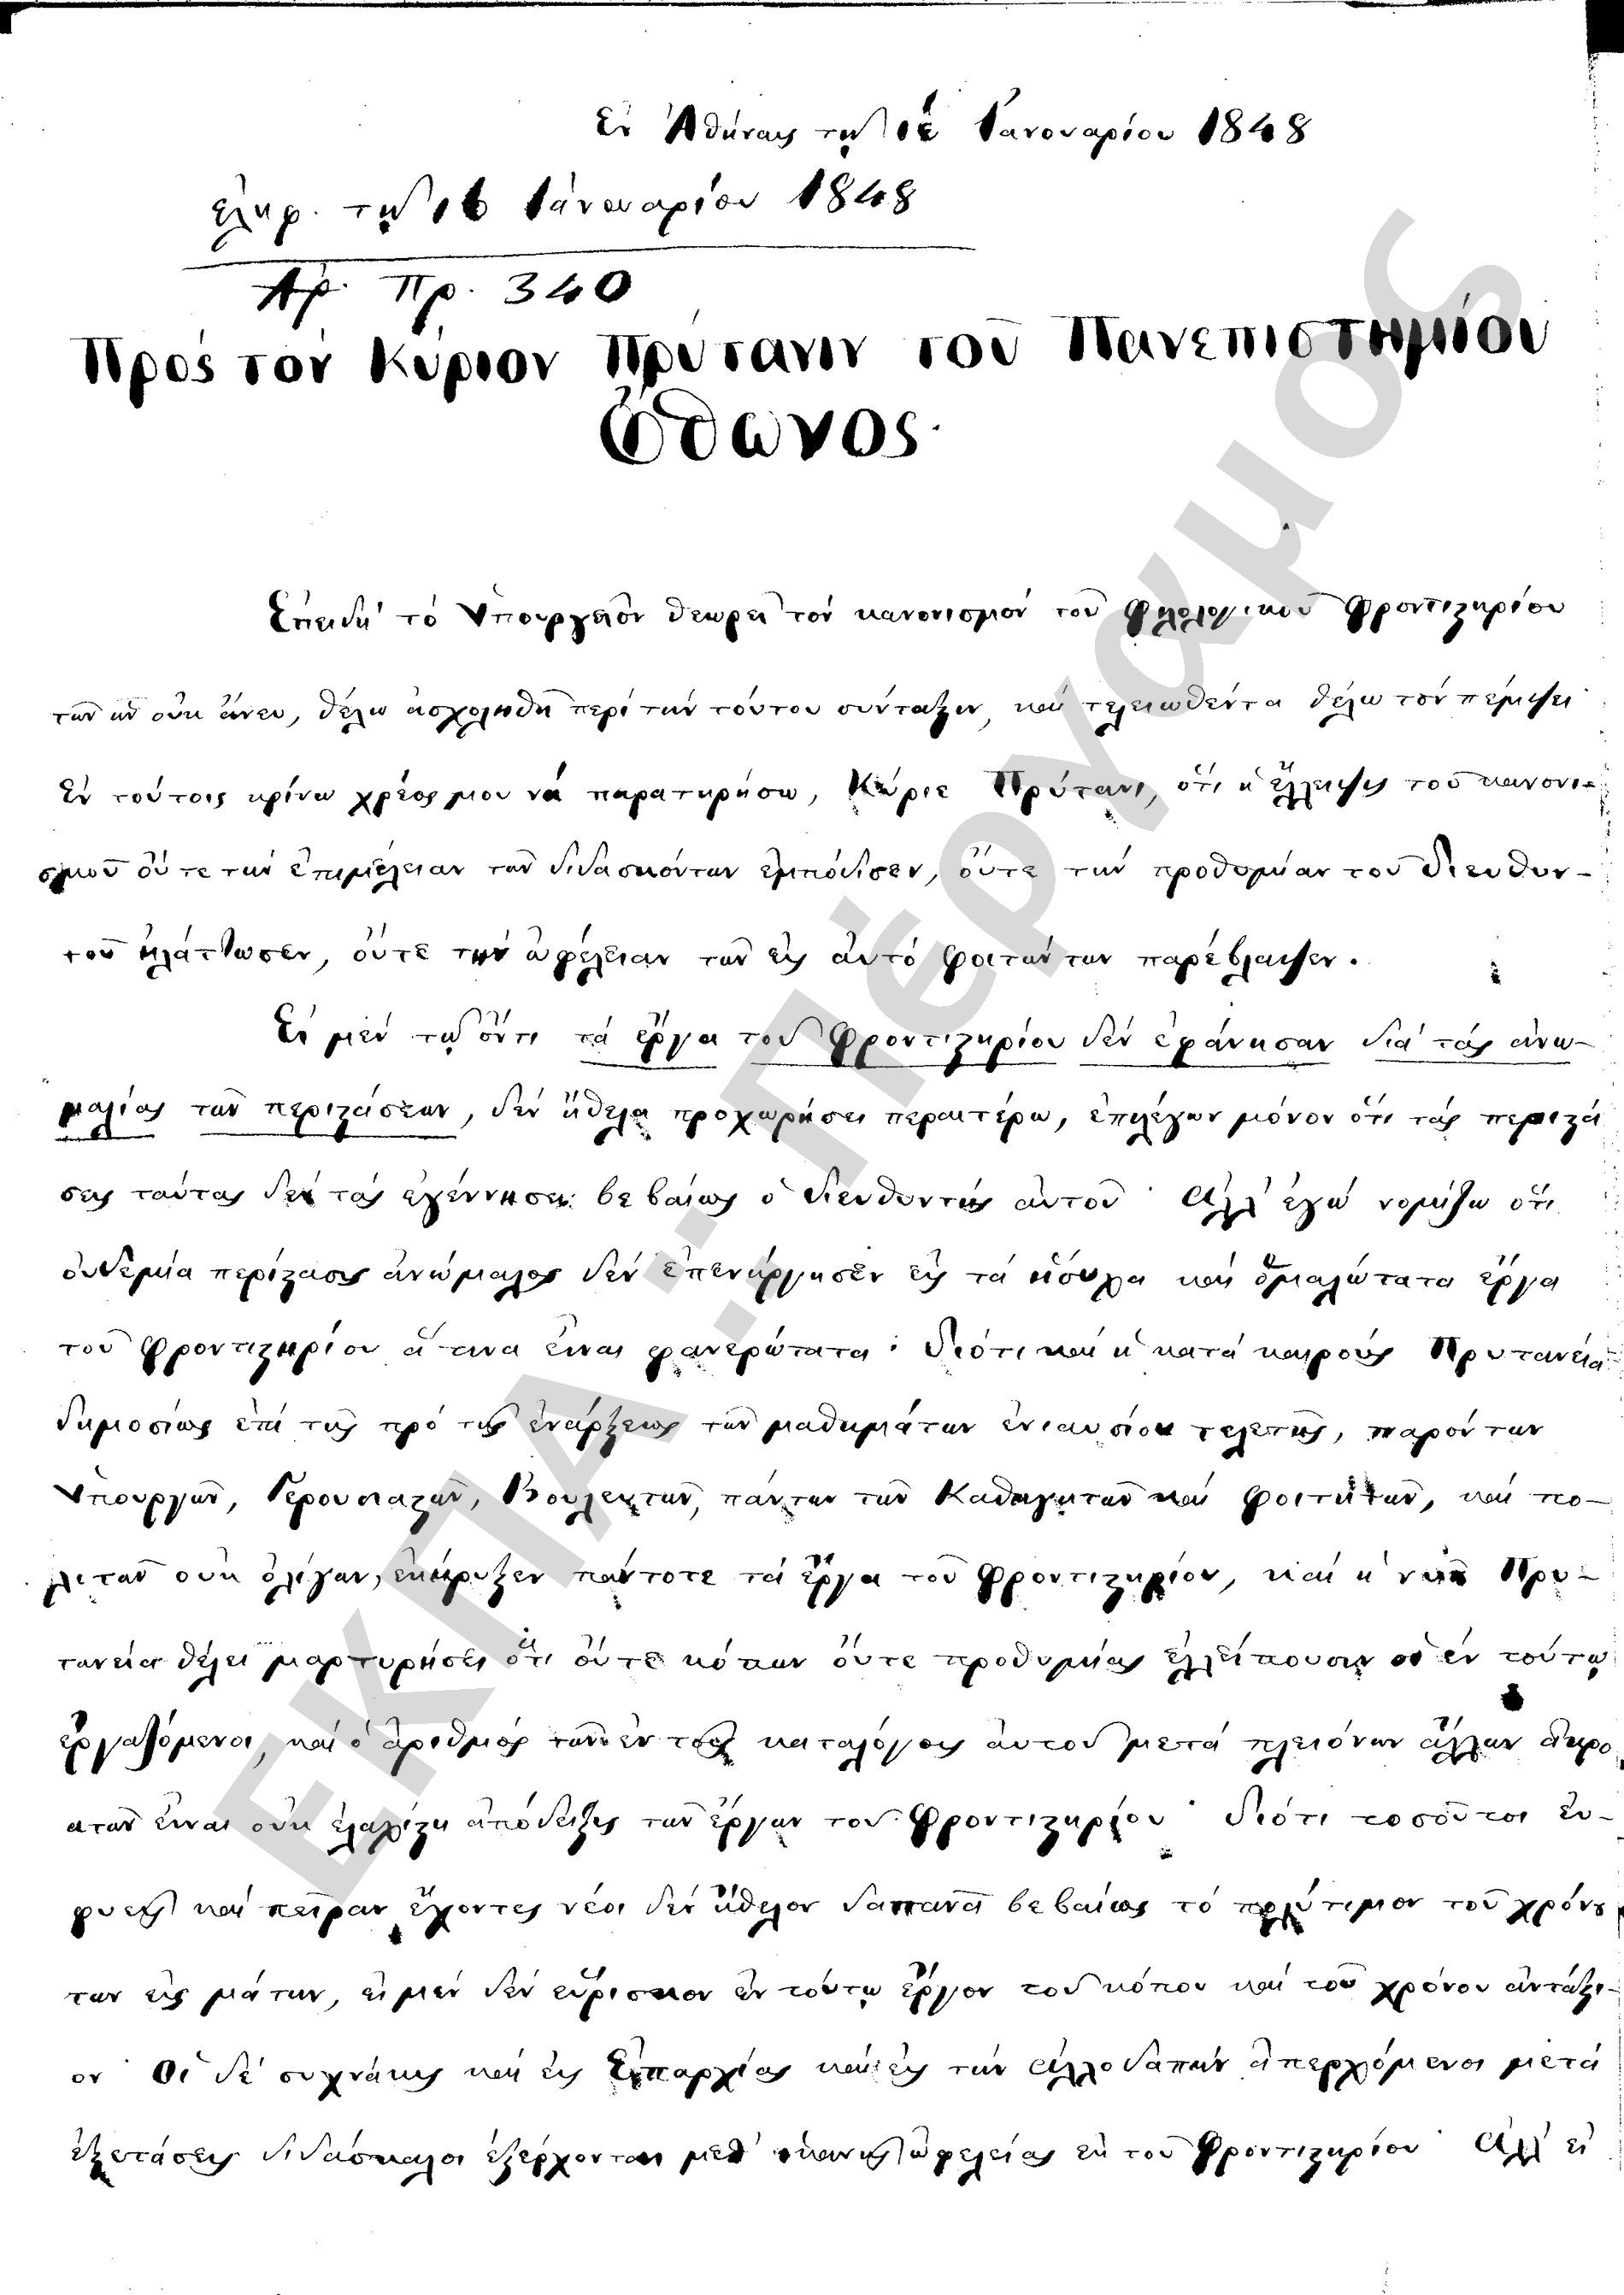 Ἐν Ἀθήναις τῇ 12 Ἰανουαρίου 1848
ἐλήφ. τῇ 16 Ἰανουαρίου 1848
Ἀρ. Πρ. 340
Πρὸς τὸν Κύριον Πρύτανιν τοῦ Πανεπιστημίου
Ὄθωνος.
Ἐπειδὴ τὸ Ὑπουργεῖον θεωρεῖ τὸν κανονισμὸν τοῦ Φιλολογικοῦ Φροντιστηρίου
τῶν ὧν οὐκ ἄνευ, θέλω ἀσχοληθῆ περὶ τὴν τούτου σύνταξιν, καὶ τελειωθέντα θέλω τὸν πέμψει·
Ἐν τούτοις κρίνω χρέος μου νὰ παρατηρήσω, Κύριε Πρύτανι, ὅτι ἡ ἔλλειψις τοῦ κανονι-
σμοῦ οὔτε τὴν ἐπιμέλειαν τῶν διδασκόντων ἐμπόδισεν, οὔτε τὴν προθυμίαν τοῦ διευθυν-
τοῦ ἠλάττωσεν, οὔτε τὴν ὠφέλειαν τῶν εἰς αὐτὸ φοιτώντων παρέβλαψεν.
Εἰ μὲν τῷ ὄντι τὰ ἔργα τοῦ Φροντιστηρίου δὲν ἐφάνησαν διὰ τὰς ἀνω-
μαλίας τῶν περιστάσεων, δὲν ἤθελα προχωρήσει περαιτέρω, ἐπιλέγων μόνον ὅτι τὰς περιστά
σεις ταύτας δὲν τὰς ἐγέννησε βεβαίως ὁ διευθυντὴς αὐτοῦ· Ἀλλ' ἐγὼ νομίζω ὅτι
οὐδεμία περίστασις ἀνώμαλος δὲν ἐπενήργησεν εἰς τὰ ἥσυχα καὶ ὁμαλώτατα ἔργα
τοῦ Φροντιστηρίου ἅτινα εἶναι φανερώτατα· διότι καὶ ἡ κατὰ καιροὺς Πρυτανεία
δημοσίως ἐπὶ τῆς πρὸ τῆς ἐνάρξεως τῶν μαθημάτων ἐνιαυσίου τελετῆς, παρόντων
Ὑπουργῶν, Γερουσιαστῶν, Βουλευτῶν, πάντων τῶν Καθηγητῶν καὶ φοιτητῶν, καὶ πο-
λιτῶν οὐκ ὀλίγων, ἐκήρυξεν πάντοτε τὰ ἔργα τοῦ Φροντιστηρίου, καὶ ἡ νῦν Πρυ-
τανεία θέλει μαρτυρήσει ὅτι οὔτε κόπων οὔτε προθυμίας ἐλλείπουσιν οἱ ἐν τούτῳ
ἐργαζόμενοι, καὶ ὁ ἀριθμὸς τῶν ἐν τοῖς καταλόγοις αὐτοῦ μετὰ πλειόνων ἄλλων ἀκρο
ατῶν εἶναι οὐκ ἐλαχίστη ἀπόδειξις τῶν ἔργων τοῦ Φροντιστηρίου· διότι τοσοῦτοι εὐ-
φυεῖς καὶ πεῖραν ἔχοντες νέοι δὲν ἤθελον δαπανᾶ βεβαίως τὸ πολύτιμον τοῦ χρόνου
των εἰς μάτην, εἰ μὲν δὲν εὕρισκον ἐν τούτῳ ἔργον τοῦ κόπου καὶ τοῦ χρόνου ἀντάξι-
ον· Οἱ δὲ συχνάκις καὶ εἰς Ἐπαρχίας καὶ εἰς τὴν ἀλλοδαπὴν ἀπερχόμενοι μετὰ
ἐξετάσεις διδάσκαλοι ἐξέρχονται μεθ' ἱκανῆς ὠφελείας ἐκ τοῦ Φροντιστηρίου· Ἀλλ' εἰ
ΕΚΠΑ...Πέργαμος